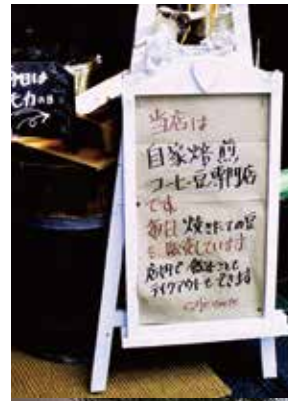 今日は
当店は
自家焙煎
コーヒー豆専門店
です
毎日 焼きたての豆
を 販売しています
店内で 飲むことも
テイクアウトも できます